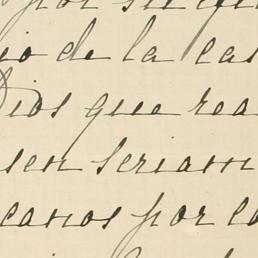 por su
io de la cas
Dios que rea
sen seriam
canos por co